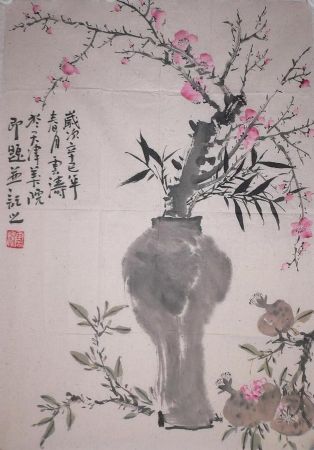 歲次辛巳年
春月雲濤
於天津美院
即題並記之